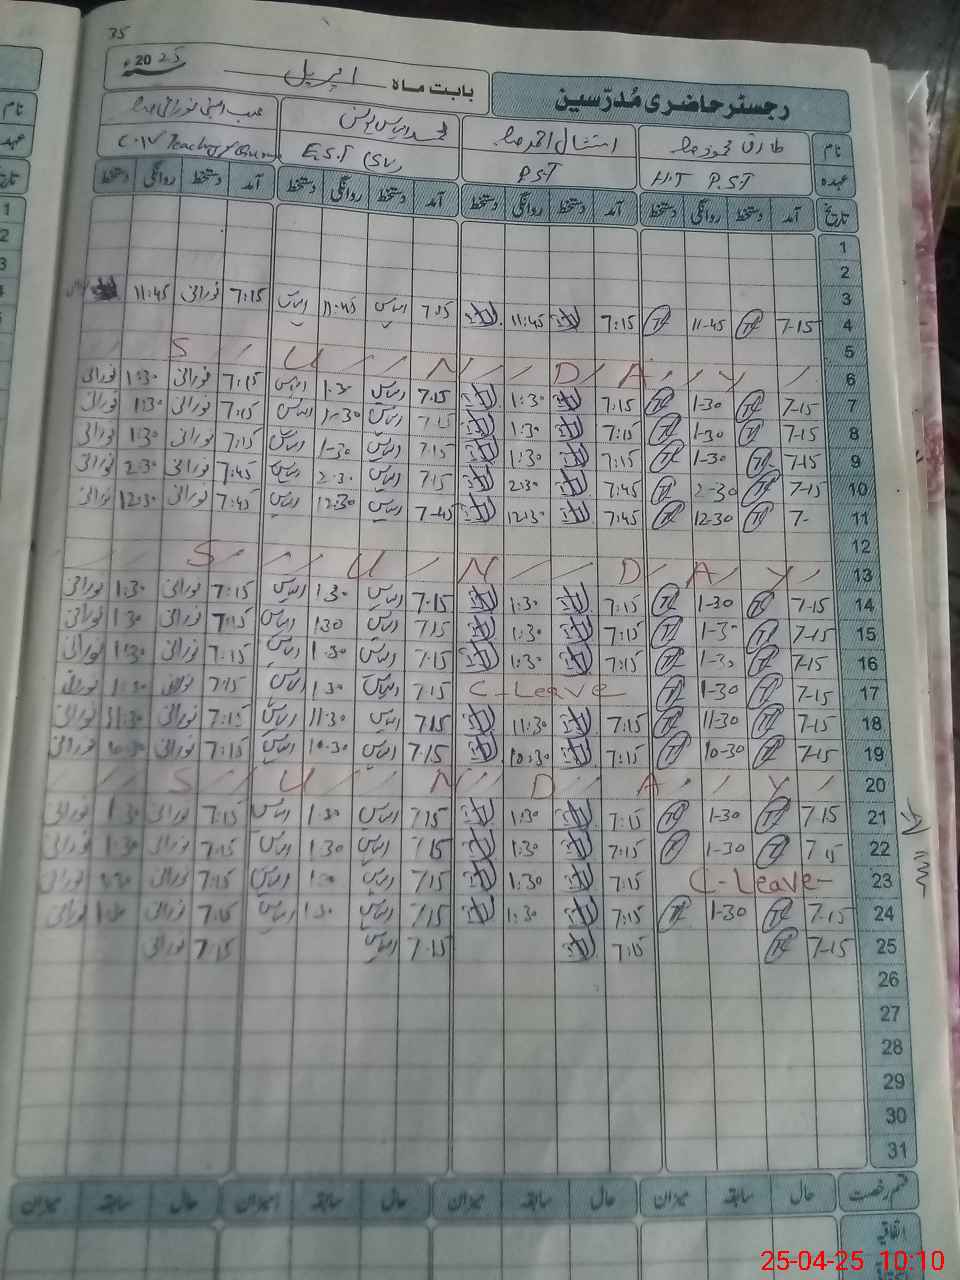 35
رجسٹر حاضری مُدرّسین بابت ماہ اپریل 2025
نام طارق محمود امتثال احمد محمد الیاس
عہدہ H.T P.S.T P.S.T E.S.T (SV)
تاریخ آمد دستخط روانگی دستخط آمد دستخط روانگی دستخط آمد دستخط روانگی دستخط آمد دستخط روانگی دستخط
1
2
3
4 7-15 11-45 7:15 11:45 7:15 الیاس 11:45 الیاس 7:15 نورانی 11:45
5
6 S U N D A Y
7 7-15 1-30 7:15 1:30 7.15 الیاس 1.30 الیاس 7:15 نورانی 1:30 نورانی
8 7-15 1-30 7:15 1:30 7.15 الیاس 1-30 الیاس 7:15 نورانی 1:30 نورانی
9 7-15 1-30 7:15 1:30 7.15 الیاس 1-30 الیاس 7:15 نورانی 1:30 نورانی
10 7-15 2-30 7:45 2:30 7.15 الیاس 2.30 الیاس 7:45 نورانی 2:30 نورانی
11 7- 12-30 7:45 12:30 7-45 الیاس 12:30 الیاس 7:45 نورانی 12:30 نورانی
12
13 S U N D A Y
14 7-15 1-30 7:15 1:30 7.15 الیاس 1.30 الیاس 7:15 نورانی 1:30 نورانی
15 7-15 1-30 7:15 1:30 7.15 الیاس 1.30 الیاس 7:15 نورانی 1:30 نورانی
16 7-15 1-30 7:15 1:30 7.15 الیاس 1.30 الیاس 7:15 نورانی 1:30 نورانی
17 7-15 1-30 C-Leave 7.15 الیاس 1.30 الیاس 7:15 نورانی 1:30 نورانی
18 7-15 11-30 7:15 11:30 7.15 الیاس 11.30 الیاس 7:15 نورانی 11:30 نورانی
19 7-15 10-30 7:15 10:30 7.15 الیاس 10.30 الیاس 7:15 نورانی 10:30 نورانی
20 S U N D A Y
21 7.15 1-30 7:15 1:30 7.15 الیاس 1.30 الیاس 7:15 نورانی 1:30 نورانی
22 7.15 1-30 7:15 1:30 7.15 الیاس 1.30 الیاس 7:15 نورانی 1:30 نورانی
23 C-Leave 7:15 1:30 7.15 الیاس الیاس 7:15 نورانی نورانی
24 7-15 1-30 7:15 1:30 7.15 الیاس 1.30 الیاس 7:15 نورانی نورانی
25 7-15 7:15 7.15 الیاس 7:15 نورانی
26
27
28
29
30
31
قسم رخصت حال سابقہ میزان حال سابقہ میزان حال سابقہ میزان حال سابقہ میزان
اتفاقیہ
25-04-25 10:10